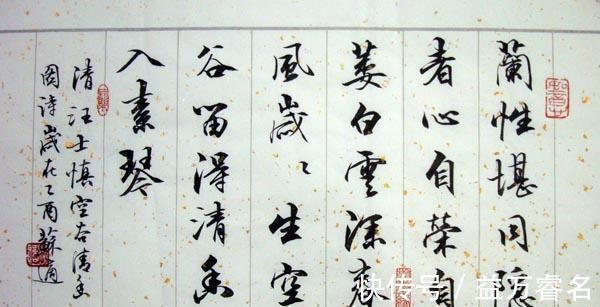 蘭性堪同隱
者心自榮自
萎白雲深春
風歲々生空
谷留得清香
入素琴
清汪士慎空谷清香
圖詩歲在乙酉蘇適
快传号 / 益万睿名